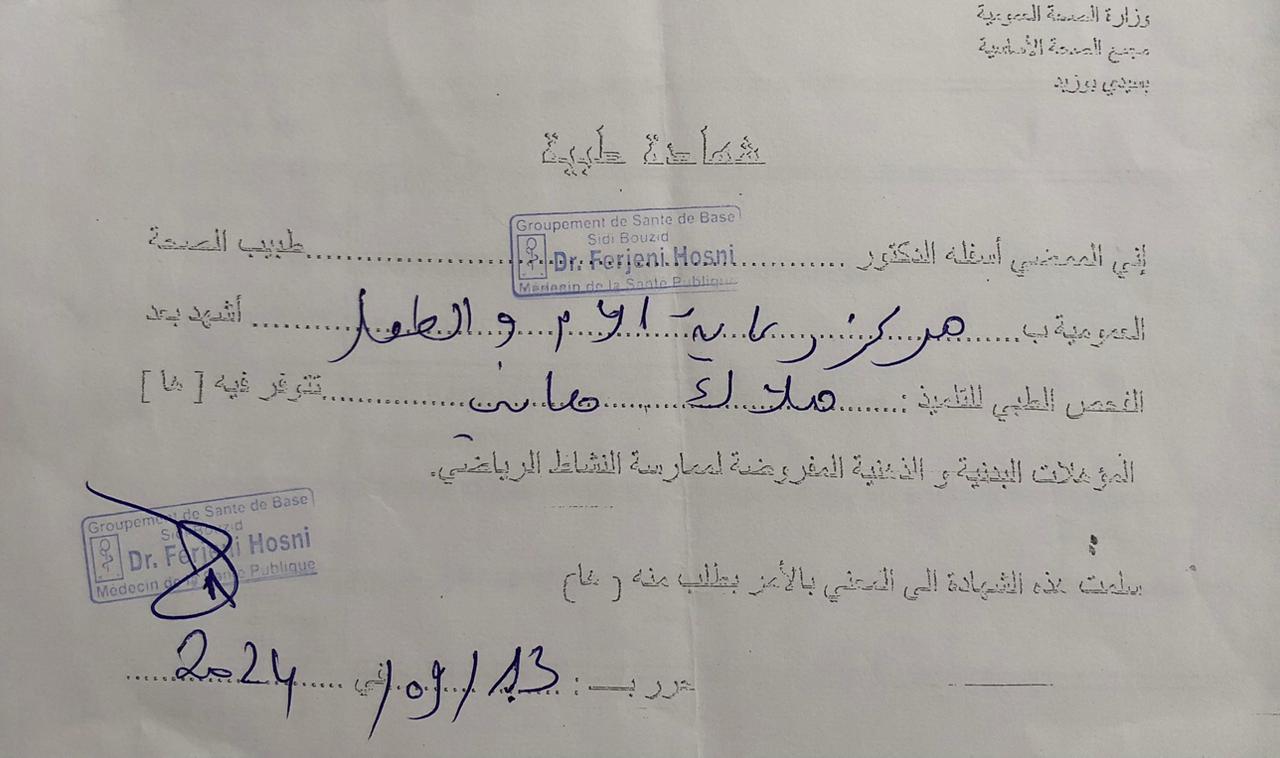 وزارة الصحة العمومية
مجمع الصحة الأساسية
بسيدي بوزيد
شهادة طبية
Groupement de Sante de Base
Sidi Bouzid
Dr. Ferjeni Hosni
Médecin de la Santé Publique
إني الممضي أسفله الدكتور .................... طبيب الصحة
العمومية ب...... مركز رعاية الأم و الطفل ...... أشهد بعد
الفحص الطبي للتلميذ : ...... ملاك هاني ...... تتوفر فيه [ ها ]
المؤهلات البدنية و الذهنية المفروضة لممارسة النشاط الرياضي.
Groupement de Sante de Base
Sidi Bouzid
Dr. Ferjeni Hosni
Médecin de la Sante Publique
سلمت هذه الشهادة الى المعني بالأمر بطلب منه ( ها )
حرر بـ : 13 / 09 / في 2024